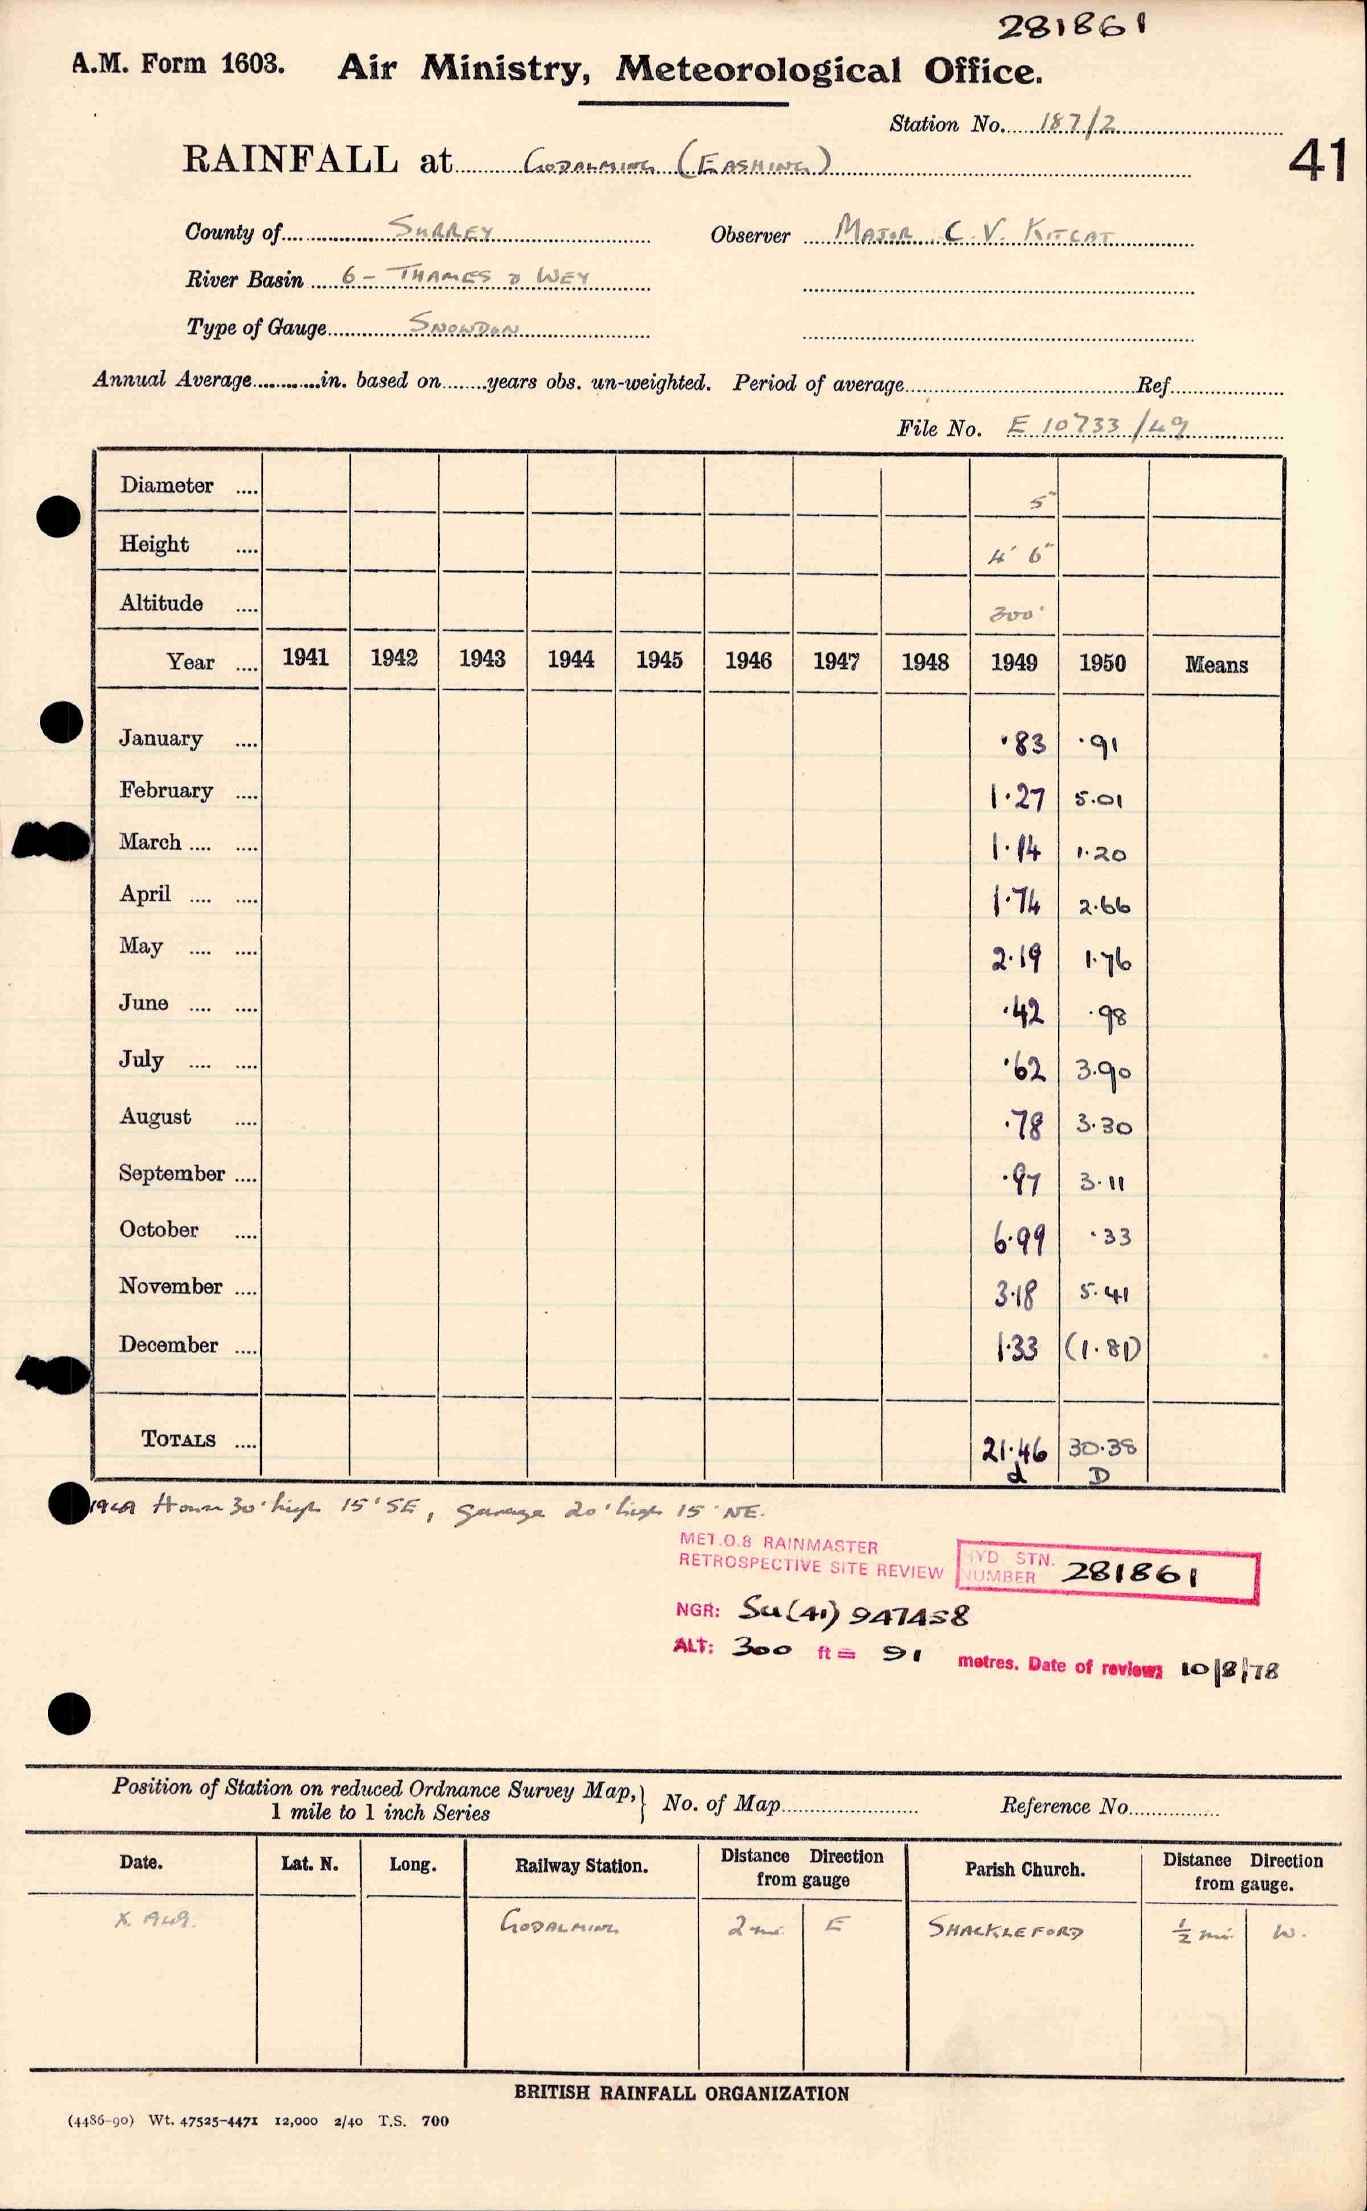 281861
A.M. Form 1603. Air Ministry, Meteorological Office.
Station No. 187/2
41
RAINFALL at GODALMING (EASHING)
County of SURREY Observer MAJOR C. V. KITCAT
River Basin 6 - THAMES & WEY
Type of Gauge SNOWDON
Annual Average............in. based on........years obs. un-weighted. Period of average............ Ref............
File No. E 10733/49
Diameter .... 5"
Height .... 4' 6"
Altitude .... 300'
Year .... 1941 1942 1943 1944 1945 1946 1947 1948 1949 1950 Means
January .... ·83 ·91
February .... 1·27 5·01
March .... .... 1·14 1·20
April .... .... 1·74 2·66
May .... .... 2·19 1·76
June .... .... ·42 ·98
July .... .... ·62 3·90
August .... ·78 3·30
September .... ·97 3·11
October .... 6·99 ·33
November .... 3·18 5·41
December .... 1·33 (1·81)
TOTALS .... 21·46 30·38
d D
1949 House 30' high 15' SE, garage 20' high 15' NE.
MET.O.8 RAINMASTER
RETROSPECTIVE SITE REVIEW
HYD STN. NUMBER 281861
NGR: SU (41) 947458
ALT: 300 ft = 91 metres. Date of review: 10/8/78
Position of Station on reduced Ordnance Survey Map, 1 mile to 1 inch Series } No. of Map............ Reference No............
Date. Lat. N. Long. Railway Station. Distance Direction from gauge Parish Church. Distance Direction from gauge.
X. 1949. GODALMING 2 mi. E SHACKLEFORD ½ mi. W.
BRITISH RAINFALL ORGANIZATION
(4486-90) Wt. 47525-4471 12,000 2/40 T.S. 700